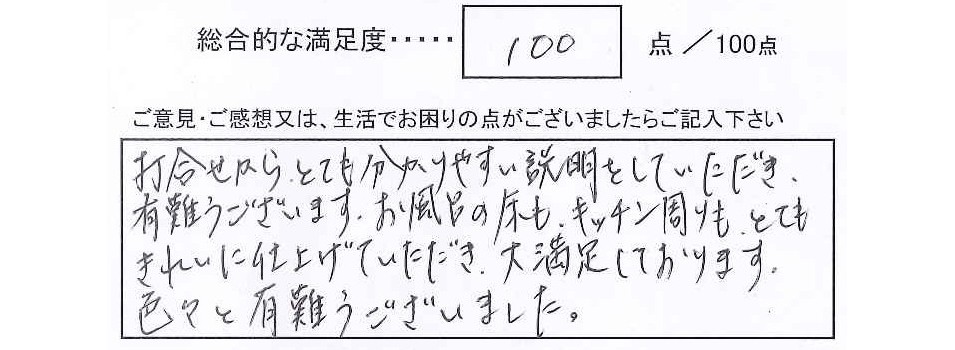 総合的な満足度・・・・・ 100 点 ／100点
ご意見・ご感想又は、生活でお困りの点がございましたらご記入下さい
打合せから、とても分かりやすい説明をしていただき、
有難うございます。お風呂の床も、キッチン周りも、とても
きれいに仕上げていただき、大満足しております。
色々と有難うございました。